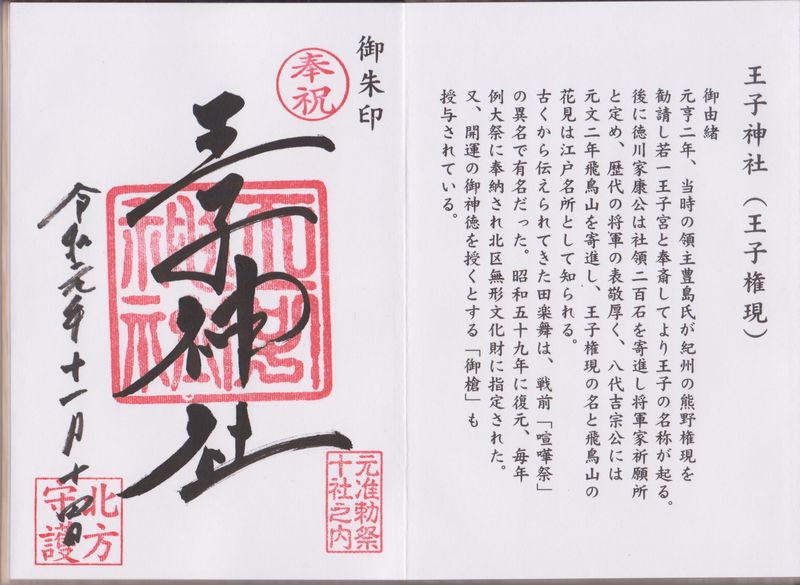 王子神社（王子権現）
御由緒
元亨二年、当時の領主豊島氏が紀州の熊野権現を
勧請し若一王子宮と奉斎してより王子の名称が起る。
後に徳川家康公は社領二百石を寄進し将軍家祈願所
と定め、歴代の将軍の表敬厚く、八代吉宗公には
元文二年飛鳥山を寄進し、王子権現の名と飛鳥山の
花見は江戸名所として知られる。
古くから伝えられてきた田楽舞は、戦前「喧嘩祭」
の異名で有名だった。昭和五十九年に復元、毎年
例大祭に奉納され北区無形文化財に指定された。
又、開運の御神徳を授くとする「御槍」も
授与されている。
御朱印
奉祝
王子神社
元准勅祭
十社之内
令和元年十一月十四日
北方
守護